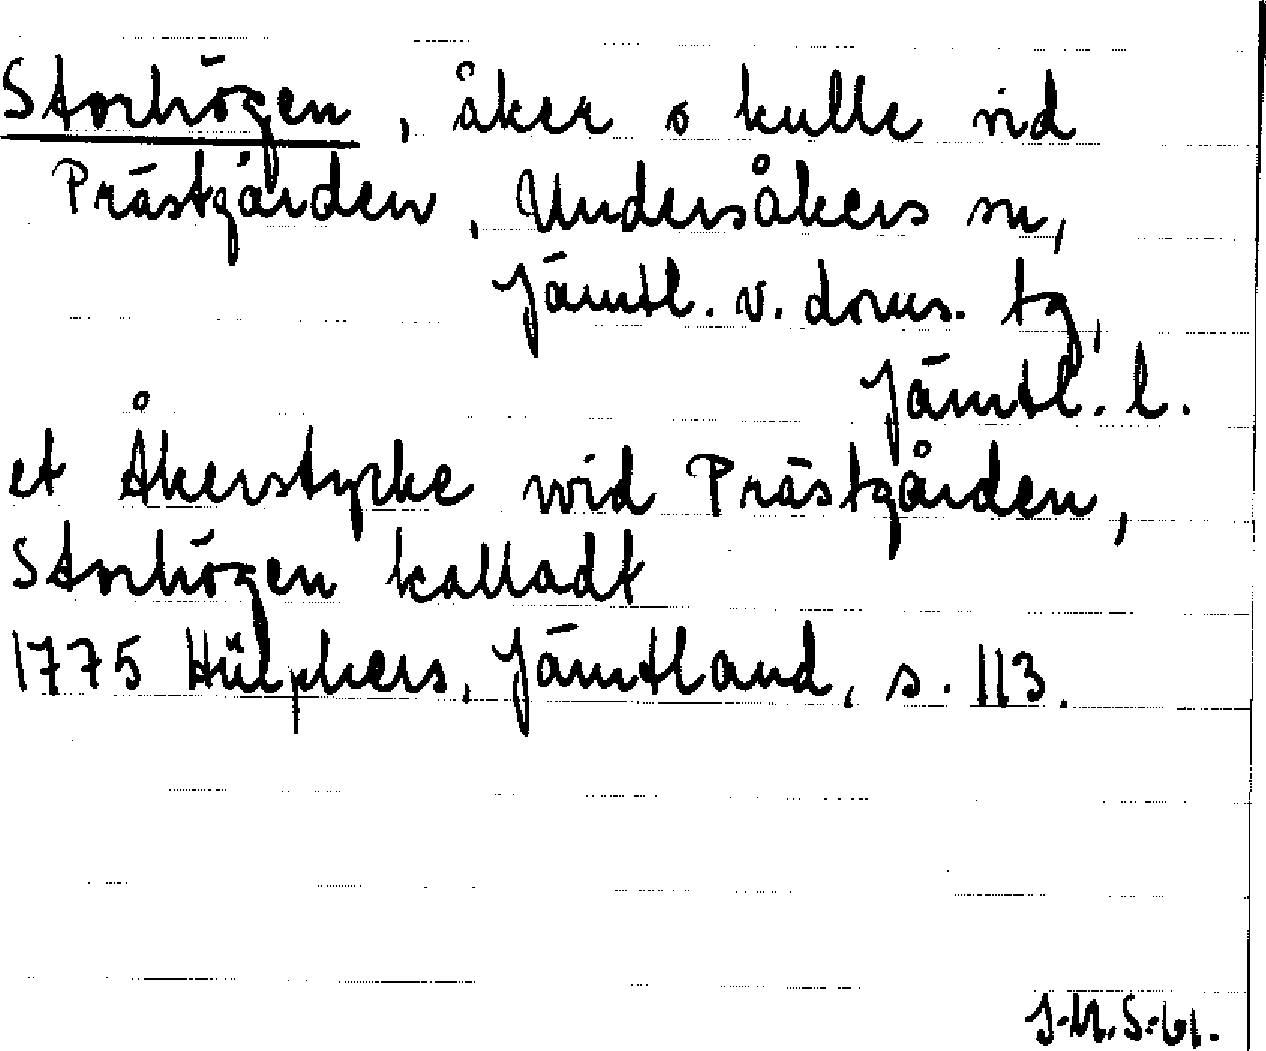 Storhögen, åker o kulle vid
Prästgården, Undersåkers sn,
Jämtl. v. doms. tg,
Jämtl. l.
et Åkerstycke wid Prästgården,
Storhögen kalladt
1775 Hülphers, Jämtland, s. 113.
J-M.S-61.